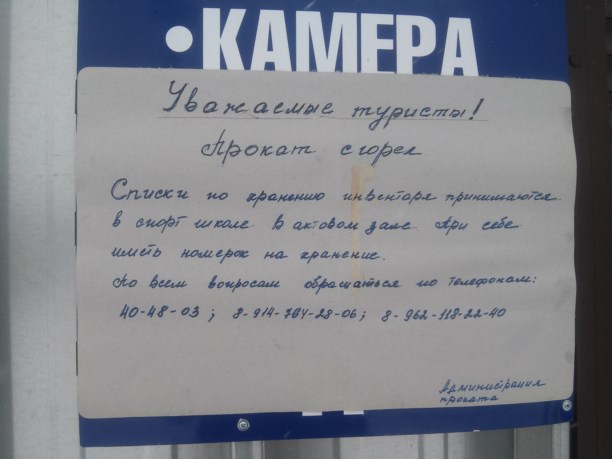 •КАМЕРА
Уважаемые туристы!
Прокат сгорел
Списки по хранению инвентаря принимаются
в спорт школе в актовом зале При себе
иметь номерок на хранение.
По всем вопросам обращаться по телефонам:
40-48-03; 8-914-764-28-06; 8-962-118-22-40
Администрация
проката